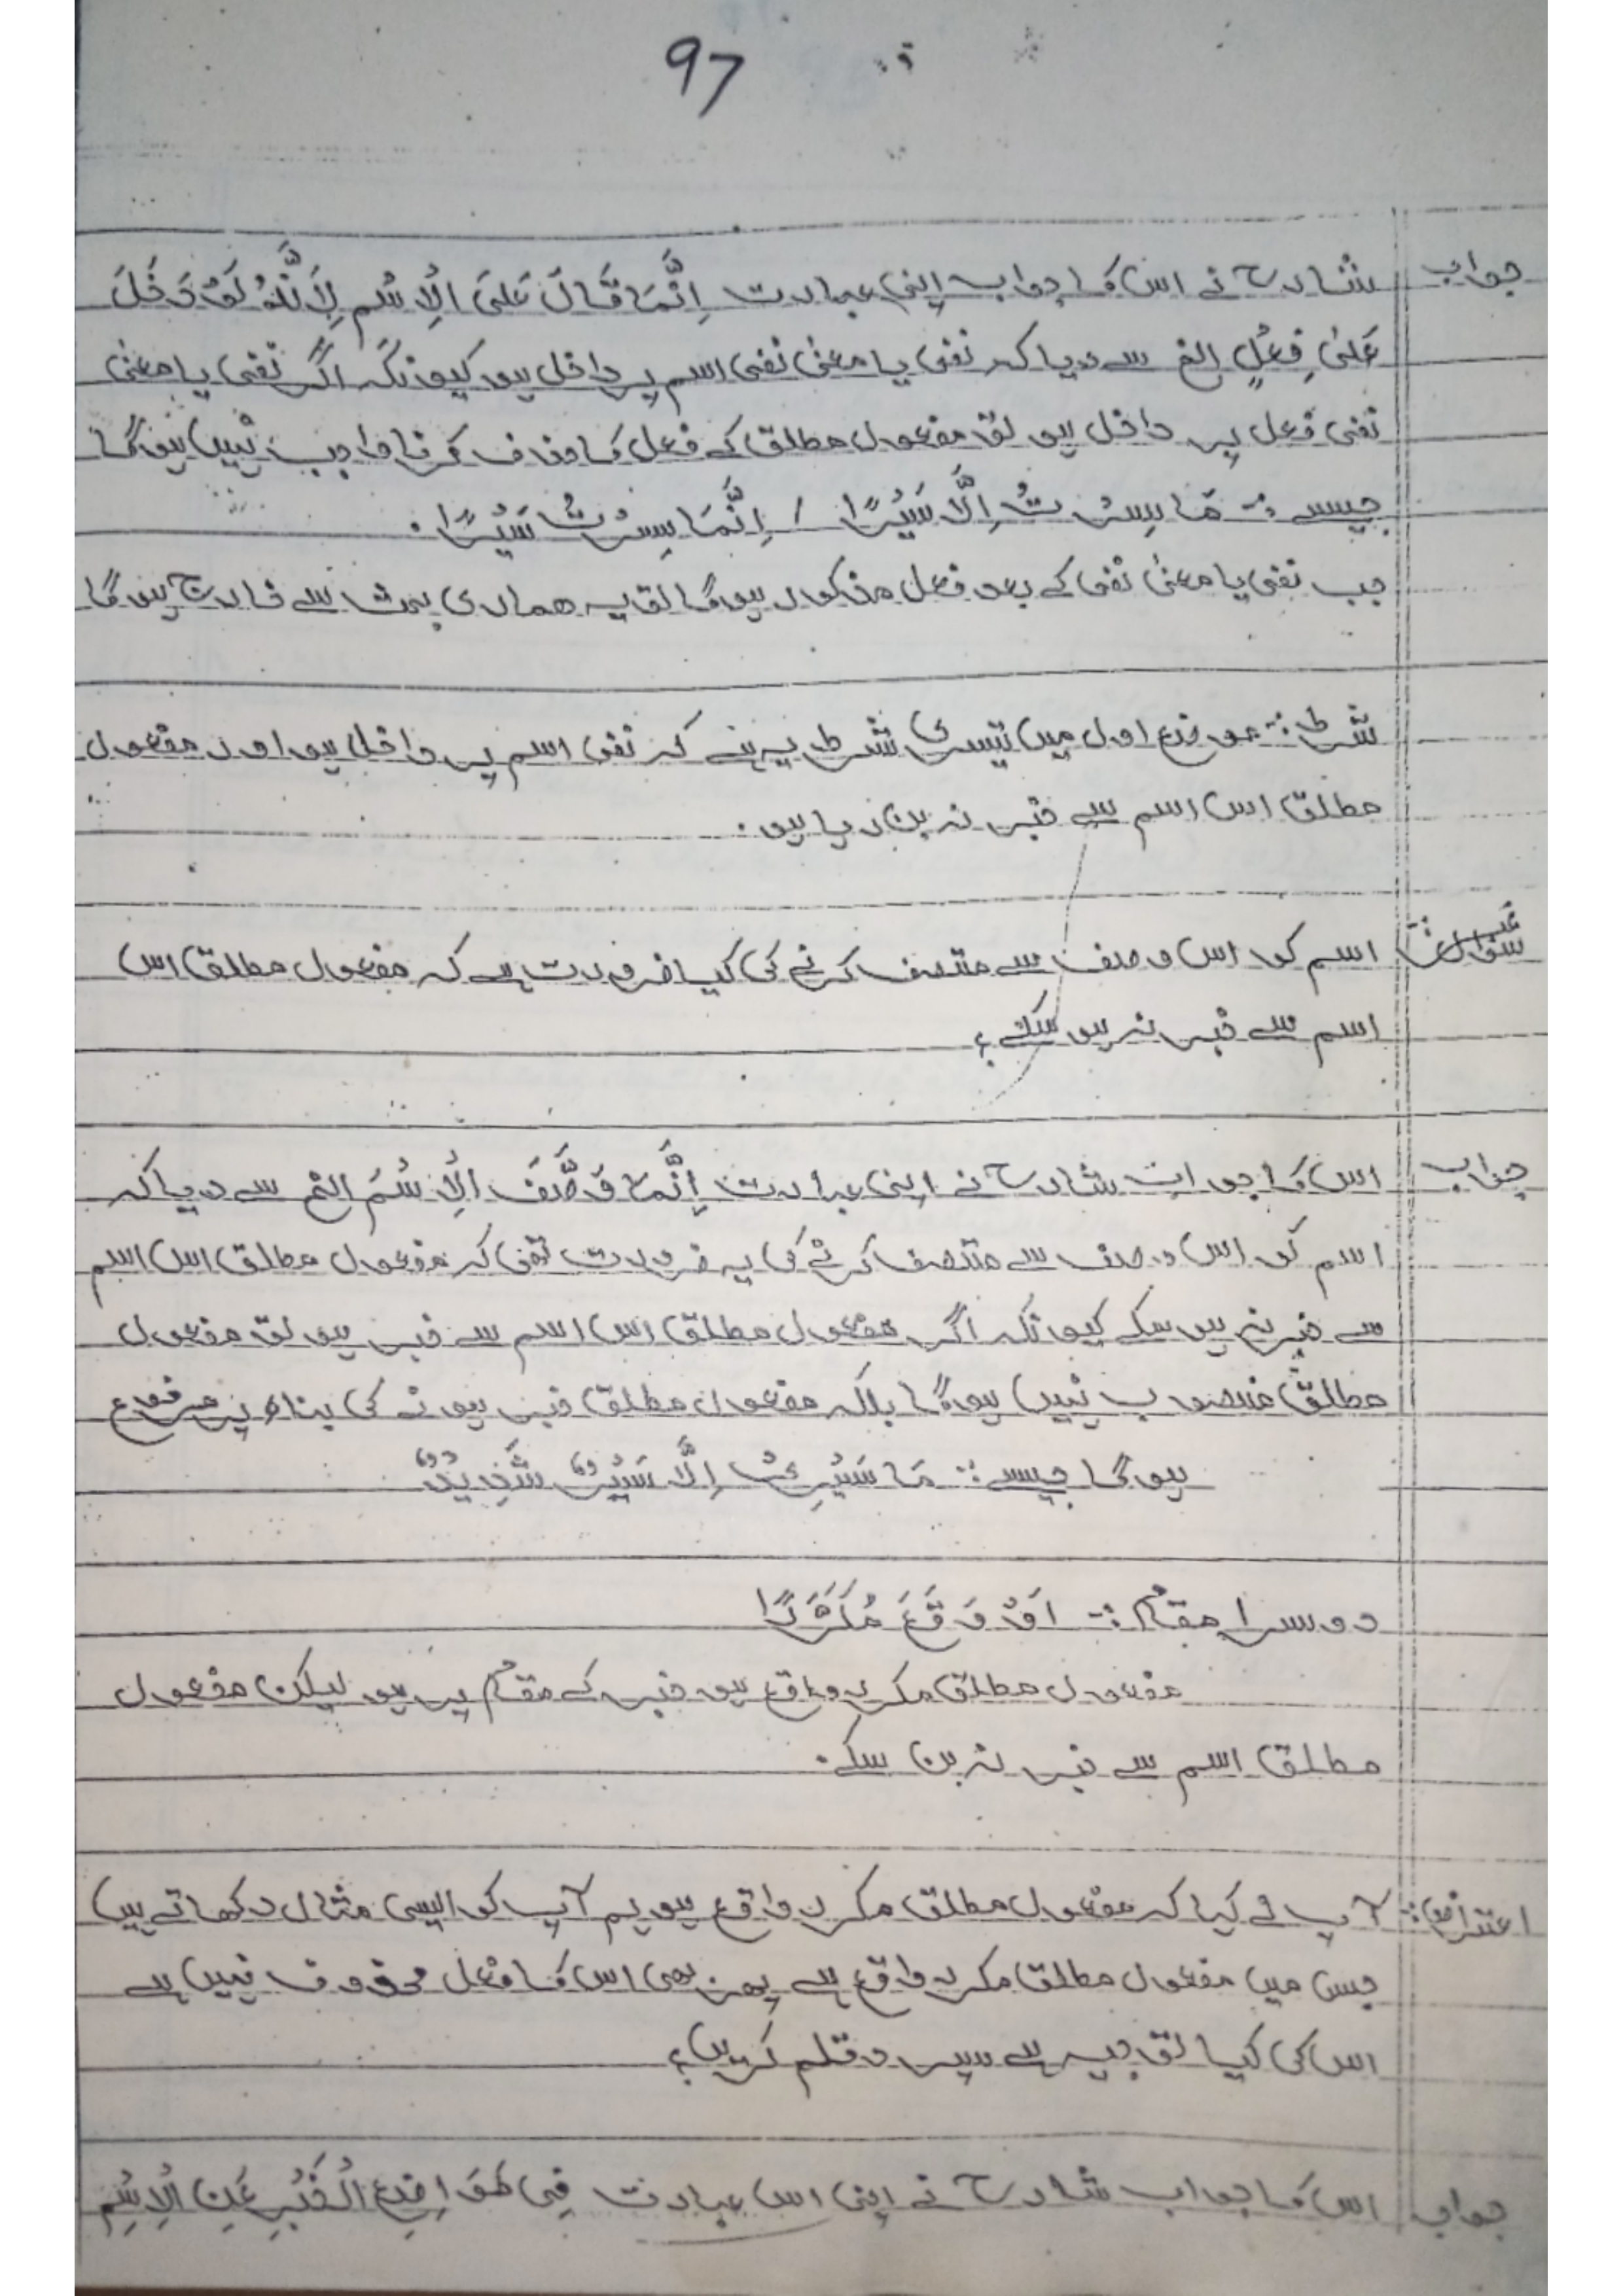 97
جواب شارح نے اس کا جواب اپنی عبارت اِنَّمَا قَالَ عَلیَ الْاِسْمِ لِاَنَّہُ لَوْ دَخَلَ
عَلیٰ فِعْلٍ الخ سے دیا کہ نفی یا معنیٰ نفی اسم پر داخل ہو کیونکہ اگر نفی یا معنیٰ
نفی فعل پر داخل ہو تو مفعول مطلق کے فعل کا حذف کرنا واجب نہیں ہو گا
جیسے :- مَا سِرْتُ اِلَّا سَیْرًا / اِنَّمَا سِرْتُ سَیْرًا.
جب نفی یا معنیٰ نفی کے بعد فعل مذکور ہو گا تو یہ ہماری بحث سے خارج ہو گا
شرط :- موضع اول میں تیسری شرط یہ ہے کہ نفی اسم پر داخل ہو اور مفعول
مطلق اس اسم سے خبر نہ بن رہا ہو.
اسم کو اس وصف سے متصف کرنے کی کیا ضرورت ہے کہ مفعول مطلق اس
اسم سے خبر نہ ہو سکے؟
جواب اس کا جواب شارح نے اپنی عبارت اِنَّمَا وَصَّفَ الْاِسْمَ الخ سے دیا کہ
اسم کو اس وصف سے متصف کرنے کی یہ ضرورت تھی کہ مفعول مطلق اس اسم
سے خبر نہ ہو سکے کیونکہ اگر مفعول مطلق اس اسم سے خبر ہو تو مفعول
مطلق منصوب نہیں ہو گا بلکہ مفعول مطلق خبر ہونے کی بناء پر مرفوع
ہو گا جیسے :- مَا سَیْرِیْ اِلَّا سَیْرٌ شَدِیْدٌ
دوسرا مقام :- اَوْ وَقَعَ مُکَرَّرًا
مفعول مطلق مکرر واقع ہو خبر کے مقام پر ہو لیکن مفعول
مطلق اسم سے خبر نہ بن سکے.
اعتراض :- آپ نے کہا کہ مفعول مطلق مکرر واقع ہو ہم آپ کو ایسی مثال دکھاتے ہیں
جس میں مفعول مطلق مکرر واقع ہے پھر بھی اس کا فعل محذوف نہیں ہے
اس کی کیا توجیہ ہے سپرد قلم کریں؟
جواب اس کا جواب شارح نے اپنی اس عبارت فِی مَوَاضِعِ الْخَبْرِ عَنِ الْاِسْمِ